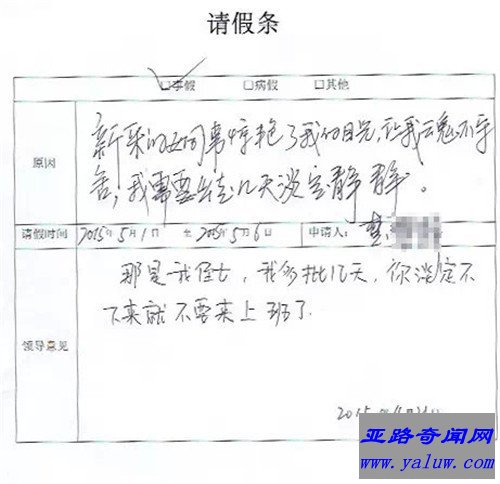 请假条
☑事假 □病假 □其他
原因
新来的女同事惊艳了我的目光,让我云鬼不守
舍,我需要出去几天淡定静静。
请假时间 2015年5月1日 至 2015年5月6日 申请人:
领导意见
那是我侄女,我多批几天,你淡定不
下来就不要来上班了.
亚路奇闻网
www.yaluw.com